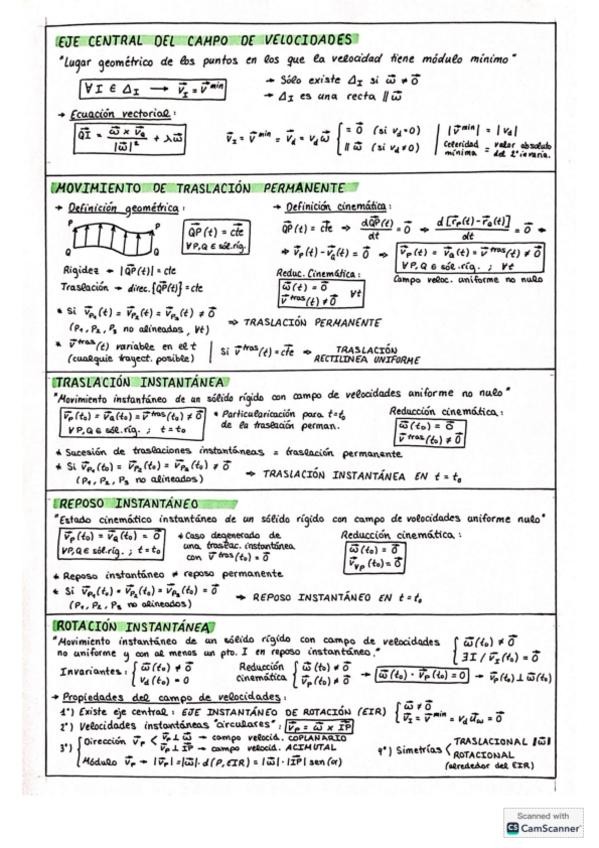 EJE CENTRAL DEL CAMPO DE VELOCIDADES
"Lugar geométrico de los puntos en los que la velocidad tiene módulo mínimo"
∀ I ∈ Δ_I → v⃗_I = v⃗^min
→ Sólo existe Δ_I si ω⃗ ≠ 0⃗
→ Δ_I es una recta ∥ ω⃗
→ Ecuación vectorial:
QI⃗ = (ω⃗ × v⃗_Q) / |ω⃗|² + λω⃗
v⃗_I = v⃗^min = v⃗_d = v_d ω⃗ { = 0⃗ (si v_d = 0)
∥ ω⃗ (si v_d ≠ 0)
|v⃗^min| = |v_d|
Celeridad mínima = valor absoluto del 2º invaria.
MOVIMIENTO DE TRASLACIÓN PERMANENTE
→ Definición geométrica:
P P
Q Q
QP⃗(t) = cte⃗
∀P,Q ∈ sól.ríg.
Rigidez → |QP⃗(t)| = cte
Traslación → direc.{QP⃗(t)} = cte
→ Definición cinemática:
QP⃗(t) = cte ⇒ dQP⃗(t)/dt = 0⃗ ⇒ d[r⃗_P(t) - r⃗_Q(t)]/dt = 0⃗ ⇒
⇒ v⃗_P(t) - v⃗_Q(t) = 0⃗ ⇒ v⃗_P(t) = v⃗_Q(t) = v⃗^tras(t) ≠ 0⃗
∀P,Q ∈ sól.ríg. ; ∀t
Campo veloc. uniforme no nulo
Reduc. Cinemática:
ω⃗(t) = 0⃗
v⃗^tras(t) ≠ 0⃗ ∀t
* Si v⃗_P₁(t) = v⃗_P₂(t) = v⃗_P₃(t) ≠ 0⃗
(P₁, P₂, P₃ no alineados, ∀t)
⇒ TRASLACIÓN PERMANENTE
* v⃗^tras(t) variable en el t
(cualquier trayect. posible)
Si v⃗^tras(t) = cte⃗ ⇒ TRASLACIÓN
RECTILINEA UNIFORME
TRASLACIÓN INSTANTÁNEA
"Movimiento instantáneo de un sólido rígido con campo de velocidades uniforme no nulo"
v⃗_P(t₀) = v⃗_Q(t₀) = v⃗^tras(t₀) ≠ 0⃗
∀P,Q ∈ sól.ríg. ; t = t₀
* Particularización para t=t₀
de la traslación perman.
Reducción cinemática:
ω⃗(t₀) = 0⃗
v⃗^tras(t₀) ≠ 0⃗
* Sucesión de traslaciones instantáneas = traslación permanente
* Si v⃗_P₁(t₀) = v⃗_P₂(t₀) = v⃗_P₃(t₀) ≠ 0⃗
(P₁, P₂, P₃ no alineados)
→ TRASLACIÓN INSTANTÁNEA EN t = t₀
REPOSO INSTANTÁNEO
"Estado cinemático instantáneo de un sólido rígido con campo de velocidades uniforme nulo"
v⃗_P(t₀) = v⃗_Q(t₀) = 0⃗
∀P,Q ∈ sól.ríg. ; t = t₀
* Caso degenerado de
una traslac. instantánea
con v⃗^tras(t₀) = 0⃗
Reducción cinemática:
ω⃗(t₀) = 0⃗
v⃗_∀P(t₀) = 0⃗
* Reposo instantáneo ≠ reposo permanente
* Si v⃗_P₁(t₀) = v⃗_P₂(t₀) = v⃗_P₃(t₀) = 0⃗
(P₁, P₂, P₃ no alineados)
→ REPOSO INSTANTÁNEO EN t = t₀
ROTACIÓN INSTANTÁNEA
"Movimiento instantáneo de un sólido rígido con campo de velocidades
no uniforme y con al menos un pto. I en reposo instantáneo."
{ ω⃗(t₀) ≠ 0⃗
∃I / v⃗_I(t₀) = 0⃗
Invariantes: { ω⃗(t₀) ≠ 0⃗
v_d(t₀) = 0
Reducción cinemática { ω⃗(t₀) ≠ 0⃗
v⃗_P(t₀) ≠ 0⃗
→ ω⃗(t₀) · v⃗_P(t₀) = 0 → v⃗_P(t₀) ⊥ ω⃗(t₀)
→ Propiedades del campo de velocidades:
1º) Existe eje central: EJE INSTANTÁNEO DE ROTACIÓN (EIR) { ω⃗ ≠ 0⃗
v⃗_I = v⃗^min = v_d u⃗_ω = 0⃗
2º) Velocidades instantáneas "circulares": v⃗_P = ω⃗ × IP⃗
3º) { Dirección v⃗_P < v⃗_P ⊥ ω⃗ → campo velocid. COPLANARIO
v⃗_P ⊥ IP⃗ → campo velocid. ACIMUTAL
Módulo v⃗_P → |v⃗_P| = |ω⃗| · d(P, EIR) = |ω⃗| · |IP⃗| sen(α)
4º) Simetrías < TRASLACIONAL ∥ ω⃗
ROTACIONAL
(alrededor del EIR)
Scanned with
CS CamScanner